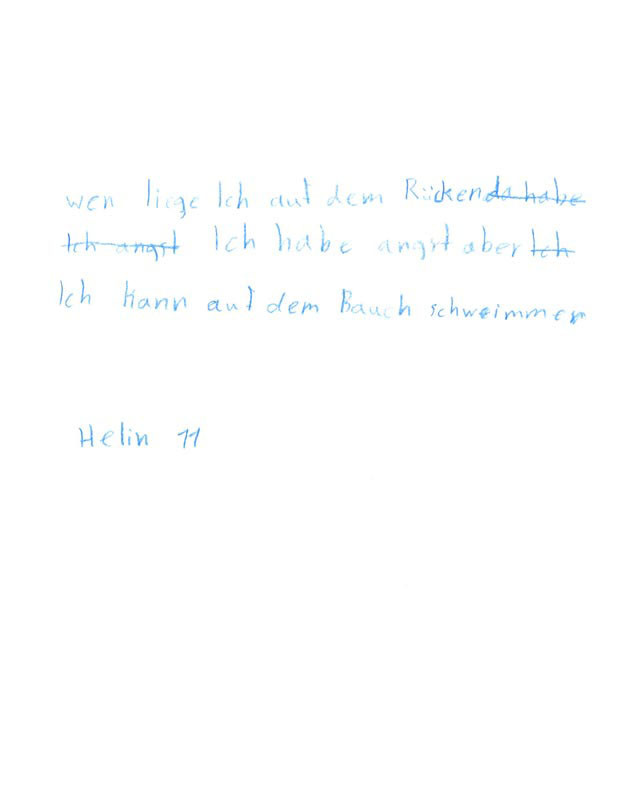 wen liege Ich auf dem Rücken da habe
Ich angst Ich habe angst aber Ich
Ich kann auf dem Bauch schweimmen
Helin 11